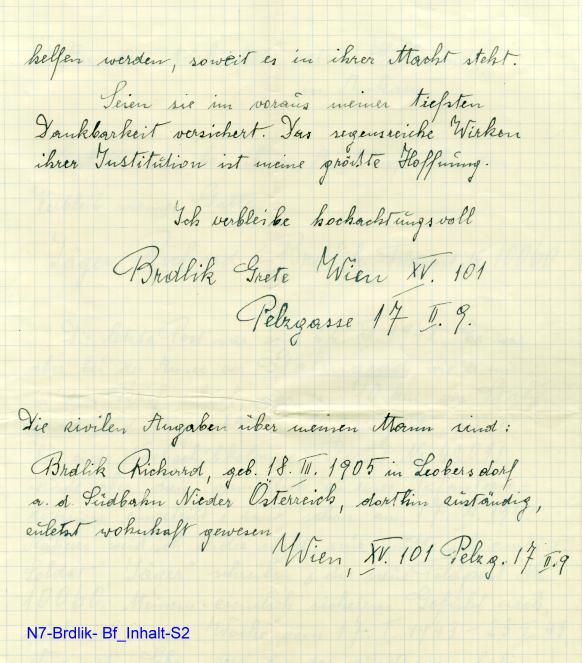 helfen werden, soweit es in ihrer Macht steht.
Seien sie im voraus meiner tiefsten
Dankbarkeit versichert. Das segensreiche Wirken
ihrer Institution ist meine größte Hoffnung.
Ich verbleibe hochachtungsvoll
Brdlik Grete Wien XV. 101
Pelzgasse 17 II. 9.
Die zivilen Angaben über meinen Mann sind:
Brdlik Richard, geb. 18. III. 1905 in Leobersdorf
a. d. Südbahn Nieder Österreich, dorthin zuständig,
zuletzt wohnhaft gewesen
Wien, XV. 101 Pelzg. 17 II.9
N7-Brdlik- Bf_Inhalt-S2